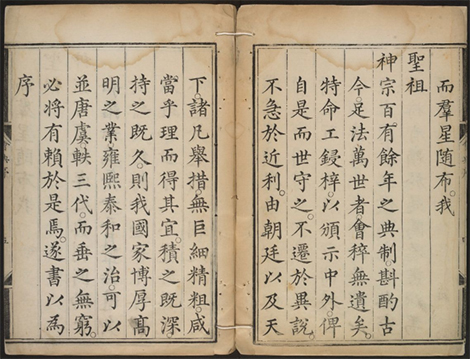 而羣星隨布。我
聖祖
神宗百有餘年之典制。斟酌古
今。足法萬世者。會稡無遺矣。
特命工鋟梓。以頒示中外。俾
自是而世守之。不遷於異說。
不急於近利。由朝廷以及天
下。諸凡舉措。無巨細精粗。咸
當乎理而得其宜。積之既深。
持之既久。則我國家博厚高
明之業。雍熙泰和之治。可以
並唐虞。軼三代。而垂之無窮。
必將有賴於是焉。遂書以為
序